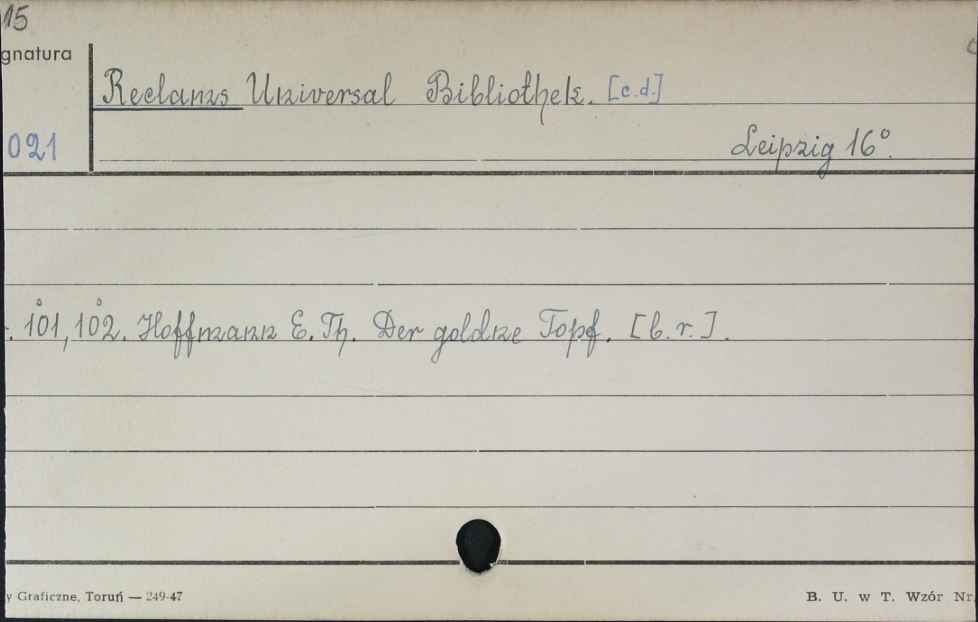 15
gnatura
Reclams Universal Bibliothek. [c.d.]
021
Leipzig 16°.
. 101, 102. Hoffmann E. Th. Der goldne Topf. [b. r.].
y Graficzne, Toruń — 249-47
B. U. w T. Wzór Nr